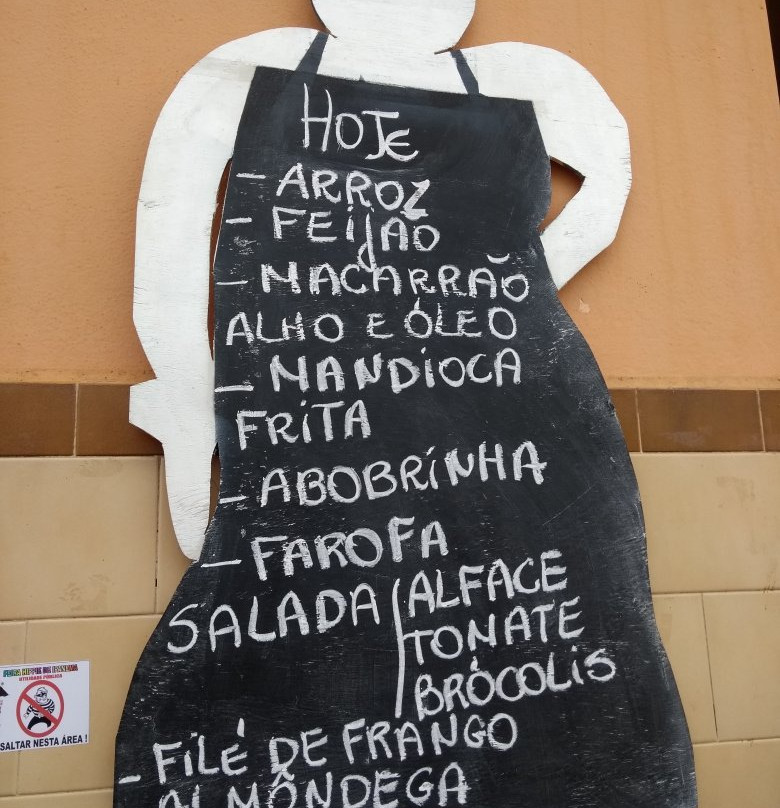 HOJE
- ARROZ
- FEIJÃO
- MACARRÃO
ALHO E ÓLEO
- MANDIOCA
FRITA
- ABOBRINHA
- FAROFA
SALADA ALFACE
TOMATE
BRÓCOLIS
- FILÉ DE FRANGO
ALMÔNDEGA
UTILIDADE PÚBLICA
SALTAR NESTA ÁREA!